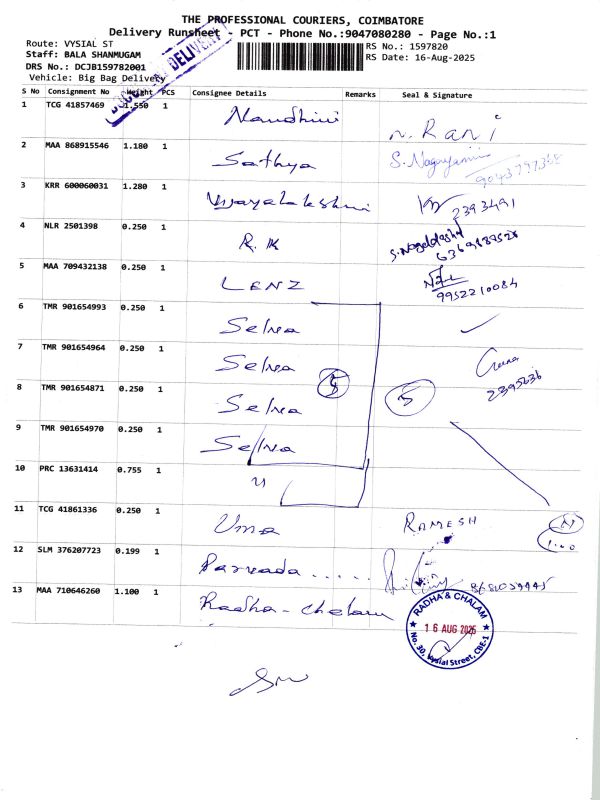 THE PROFESSIONAL COURIERS, COIMBATORE
Delivery Runsheet - PCT - Phone No.:9047080280 - Page No.:1
Route: VYSIAL ST
RS No.: 1597820
Staff: BALA SHANMUGAM
RS Date: 16-Aug-2025
DRS No.: DCJB159782001
Vehicle: Big Bag Delivery
S No Consignment No Weight PCS Consignee Details Remarks Seal & Signature
1 TCG 41857469 1.550 1 Nandhini n. Rani
2 MAA 868915546 1.180 1 Sathya S. Nagayammi
3 KRR 600060031 1.280 1 Vijayalakshmi 2393491
4 NLR 2501398 0.250 1 R.K
5 MAA 709432138 0.250 1 LENZ
9952210084
6 TMR 901654993 0.250 1 Selva
7 TMR 901654964 0.250 1 Selva
8 TMR 901654871 0.250 1 Selva 5 2395636
9 TMR 901654970 0.250 1 Selva
10 PRC 13631414 0.755 1 "
11 TCG 41861336 0.250 1 Uma RAMESH
12 SLM 376207723 0.199 1
13 MAA 710646260 1.100 1 Radha-Chelam
RADHA & CHALAM
16 AUG 2025
No. 30, Vysial Street, CBE-1